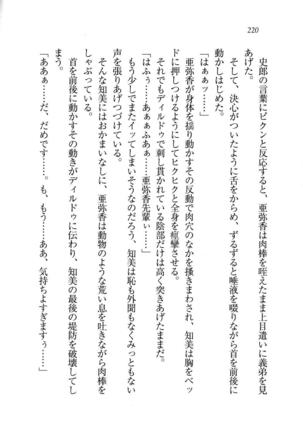 220
史郎の言葉にビクンと反応すると、亜弥香は肉棒を咥えたまま上目遣いに義弟を見
あげた。
そして、決心がついたように舌をからめ、ずるずると唾液を啜りながら首を前後に
動かしはじめた。
「はぁぁッ……」
亜弥香が身体を揺り動かすその反動で肉穴のなかを掻きまわされ、知美は胸をベッ
ドに押しつけるようにしてヒクヒクと全身を痙攣させる。
それでもディルドゥで刺し貫かれている陰部だけは高く突きあげたままだ。
「はふぅ……あぁぁふああ……亜弥香先輩ぃ……」
もう少しでまたイッてしまいそうなのだろう、知美は恥も外聞もなくみずからあえぎ
声を張りあげつづけている。
そんな知美にはおかまいなしに、亜弥香は動物のような荒い息を吐きながら肉棒を
しゃぶっている。
首を前後に動かすその動きがディルドゥに伝わり、知美の最後の堤防を破壊してし
まう。
「ああぁ……だ、だめですぅ……。も、もう……ああ、気持ちよすぎますぅ……」